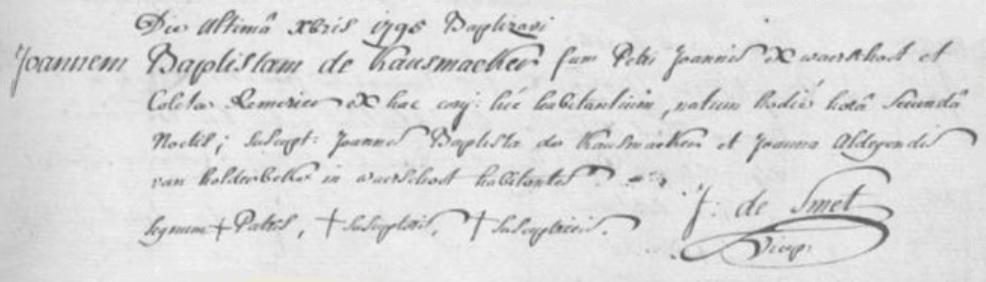 Die Altimâ Xbris 1795 Baptizavi
Joannem Baptistam de Kausmaeker fum Petri Joannis ex waerschoot et
Coleta ex hac conj: hic habitantium, natum hodie horâ secundâ
Noctis; suscept: Joannes Baptista de Kausmaeker et Joanna Aldegondis
van holderbeke in waerschoot habitantes
signum + Patris, + susceptoris, + susceptricis.
J: de Smet
Vicep: